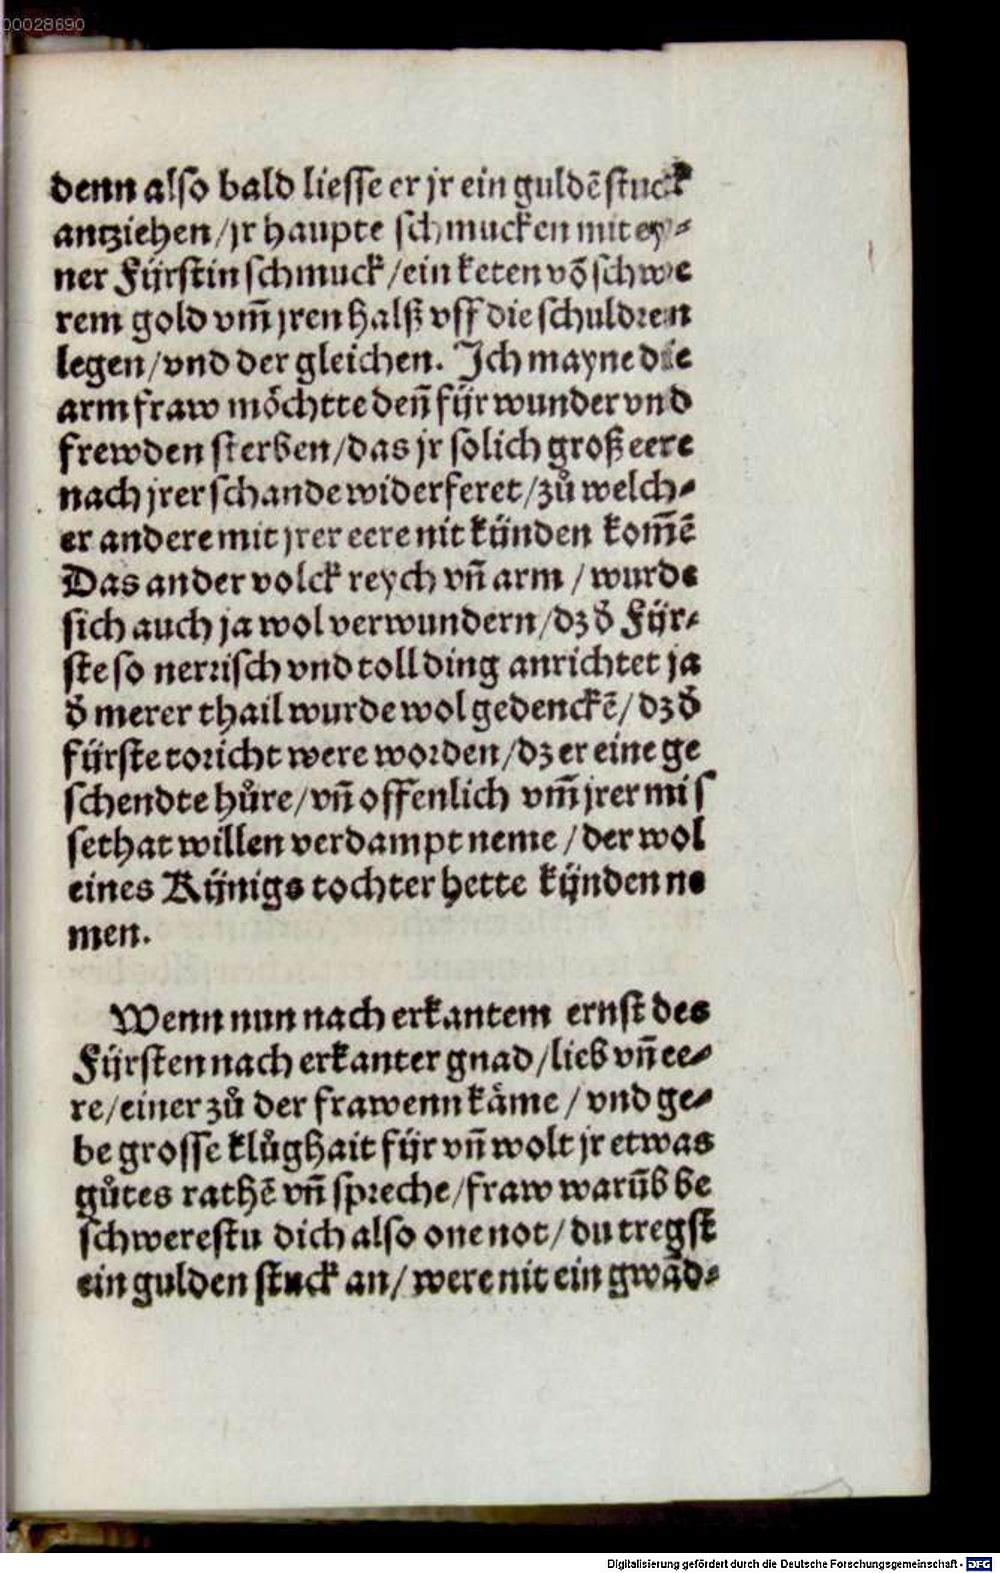 00028690
denn also bald liesse er jr ein guldē stuck
antziehen/jr haupte schmucken mit ey⸗
ner Fürstin schmuck/ein keten vō schwe
rem gold vm̄ jren halß vff die schuldren
legen/vnd der gleichen. Ich mayne die
arm fraw möchtte deñ für wunder vnd
frewden sterben/das jr solich groß eere
nach jrer schande widerferet/zů welch⸗
er andere mit jrer eere nit künden kom̄ē
Das ander volck reych vñ arm / wurde
sich auch ja wol verwundern/dz d̕ Für⸗
ste so nerrisch vnd toll ding anrichtet ja
d̕ merer thail wurde wol gedenckē/ dz d̕
fürste toricht were worden/dz er eine ge
schendte hůre/vñ offenlich vm̄ jrer mis
sethat willen verdampt neme / der wol
eines Künigs tochter hette künden ne
men.
Wenn nun nach erkantem ernst des
Fürsten nach erkanter gnad/lieb vñ ee⸗
re/einer zů der frawenn käme / vnd ge⸗
be grosse klůghait für vñ wolt jr etwas
gůtes rathē vñ spreche/fraw warūb be
schwerestu dich also one not/ du tregst
ein gulden stuck an/ were nit ein gwād⸗
Digitalisierung gefördert durch die Deutsche Forschungsgemeinschaft - DFG